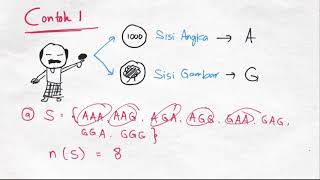 Contoh 1
1000 Sisi Angka → A
Sisi Gambar → G
a S = { AAA, AAG, AGA, AGG, GAA, GAG,
GGA, GGG }
n(S) = 8